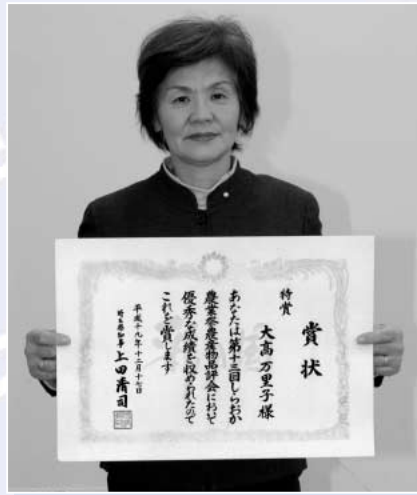 賞状
特賞
大高万里子様
あなたは第十三回しらおか
農業祭農産物品評会において
優秀な成績を収められたので
これを賞します
平成十九年十二月十七日
埼玉県知事 上田清司